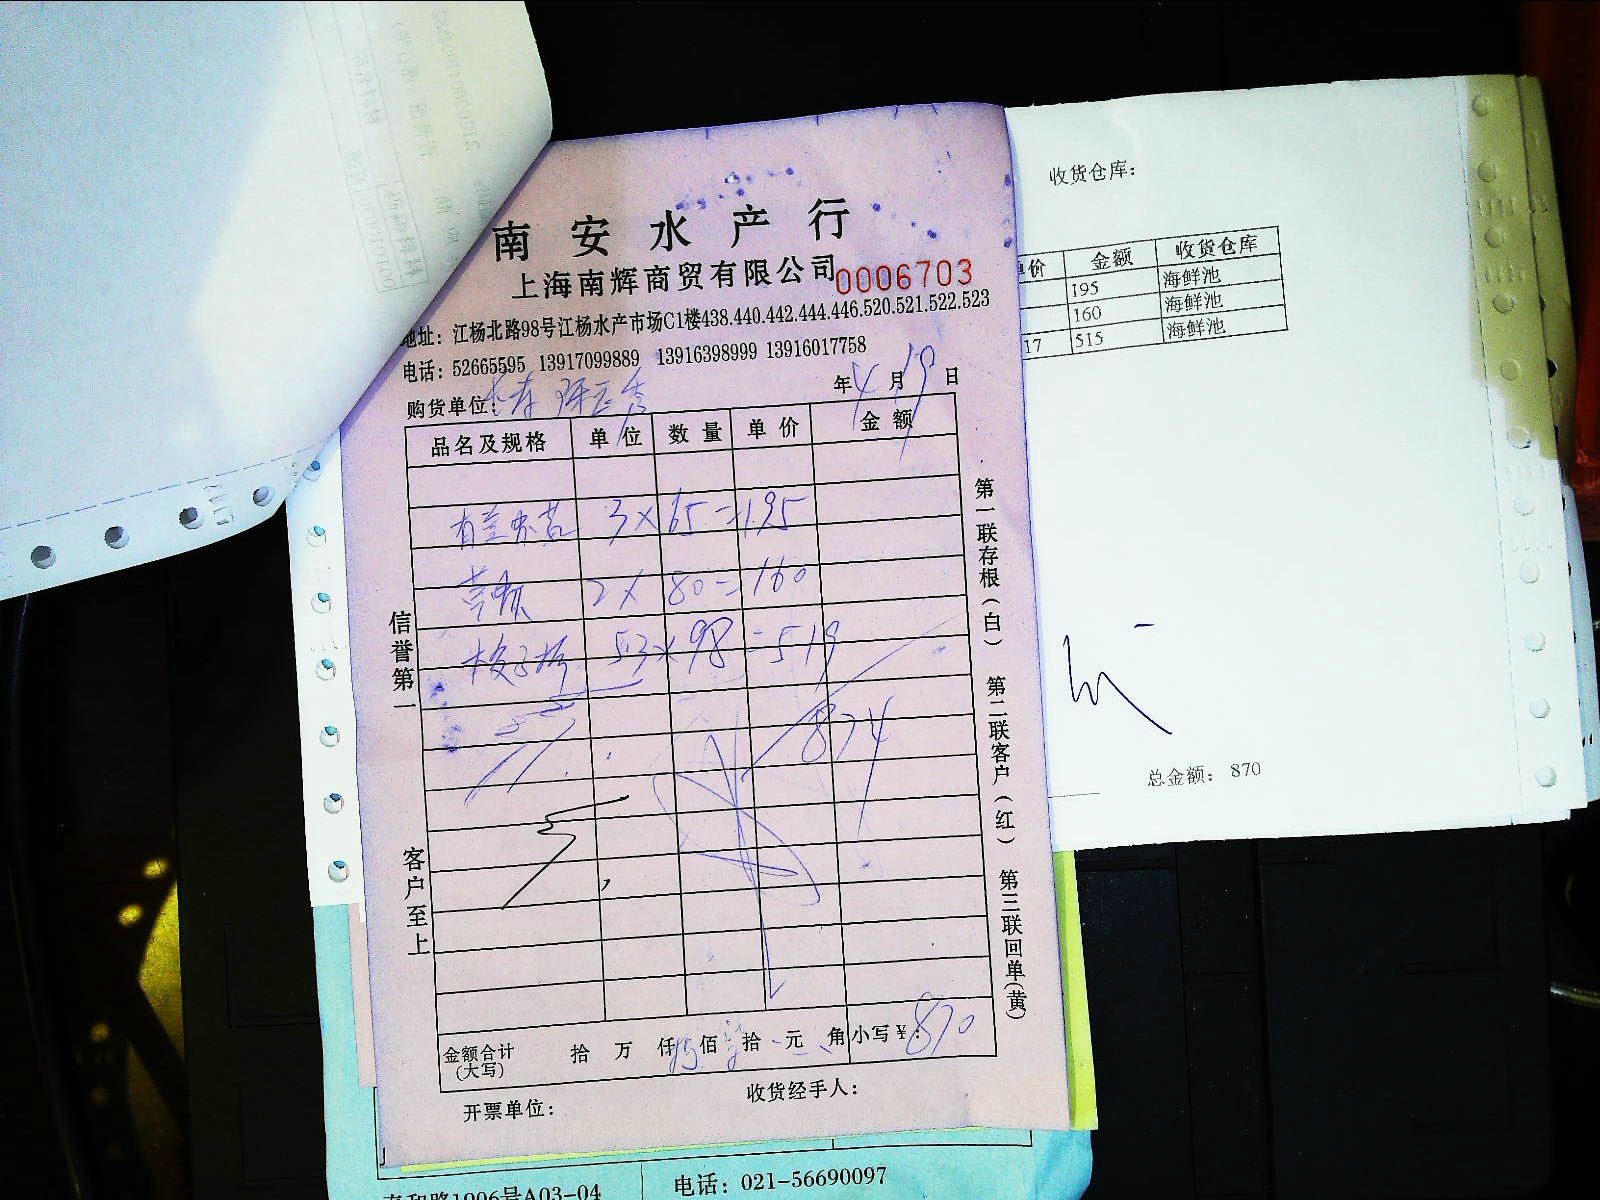 南安水产行
上海南辉商贸有限公司 0006703
地址：江杨北路98号江杨水产市场C1楼438.440.442.444.446.520.521.522.523
电话：52665595 13917099889 13916398999 13916017758
年4月19日
购货单位：
品名及规格 单位 数量 单价 金额
3×65=195
2×80=160
53×98=519
874
金额合计(大写) 拾 万 仟 佰 拾 元 角 小写￥：870
开票单位： 收货经手人：
信誉第一
客户至上
第一联存根(白)
第二联客户(红)
第三联回单(黄)
收货仓库：
价 金额 收货仓库
195 海鲜池
160 海鲜池
17 515 海鲜池
总金额： 870
号A03-04 电话：021-56690097